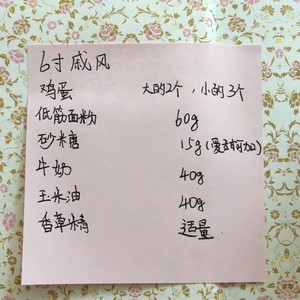 6寸戚风
鸡蛋 大的2个，小的3个
低筋面粉 60g
砂米糖 15g(爱甜可加)
牛奶 40g
玉米油 40g
香草精 适量